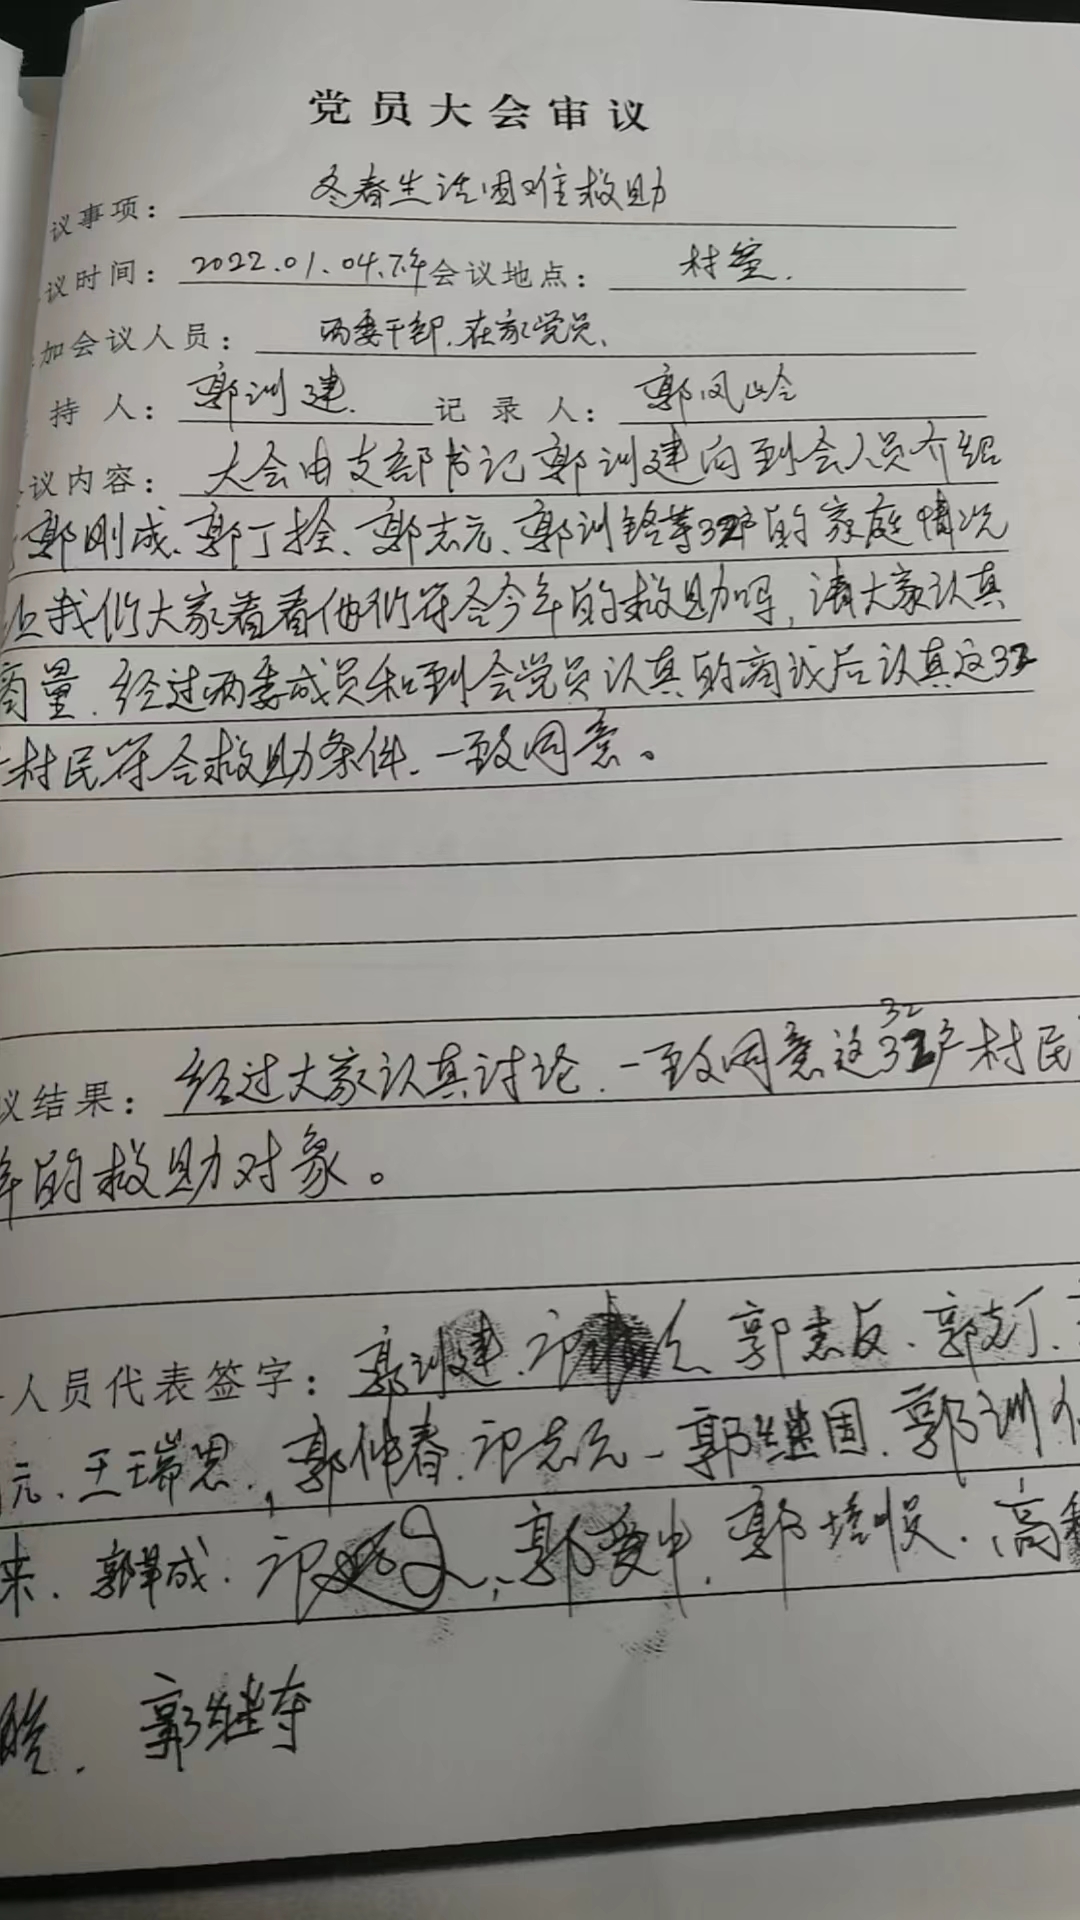 党员大会审议
议事项： 冬春生活困难救助
议时间： 2022.01.04.下午 会议地点： 村室.
加会议人员： 两委干部.在家党员、
持人： 郭训建. 记录人： 郭凤岭
议内容： 大会由支部书记郭训建向到会人员介绍
郭刚成、郭丁拴、郭志元、郭训铭等32户的家庭情况
让我们大家看看他们符合今年的救助吗，请大家认真
商量.经过两委成员和到会党员认真的商议后认真这32
村民符合救助条件.一致同意。
32
议结果： 经过大家认真讨论.一致同意这户村民
年的救助对象。
人员代表签字： 郭训建、郭志反、郭克丁、
元、王瑞恩、郭仲春.邓志元-郭继国.郭训
来、郭羊成.郭爱中.郭培叔.高
郭继夺